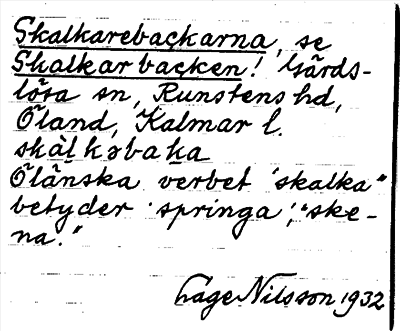 Skalkarebackarna, se
Skalkarbacken! Gärds-
lösa sn, Runstens hd,
Öland, Kalmar l.
skàlkəbaka
Öländska verbet "skalka"
betyder "springa", "ske-
na."
Lage Nilsson 1932